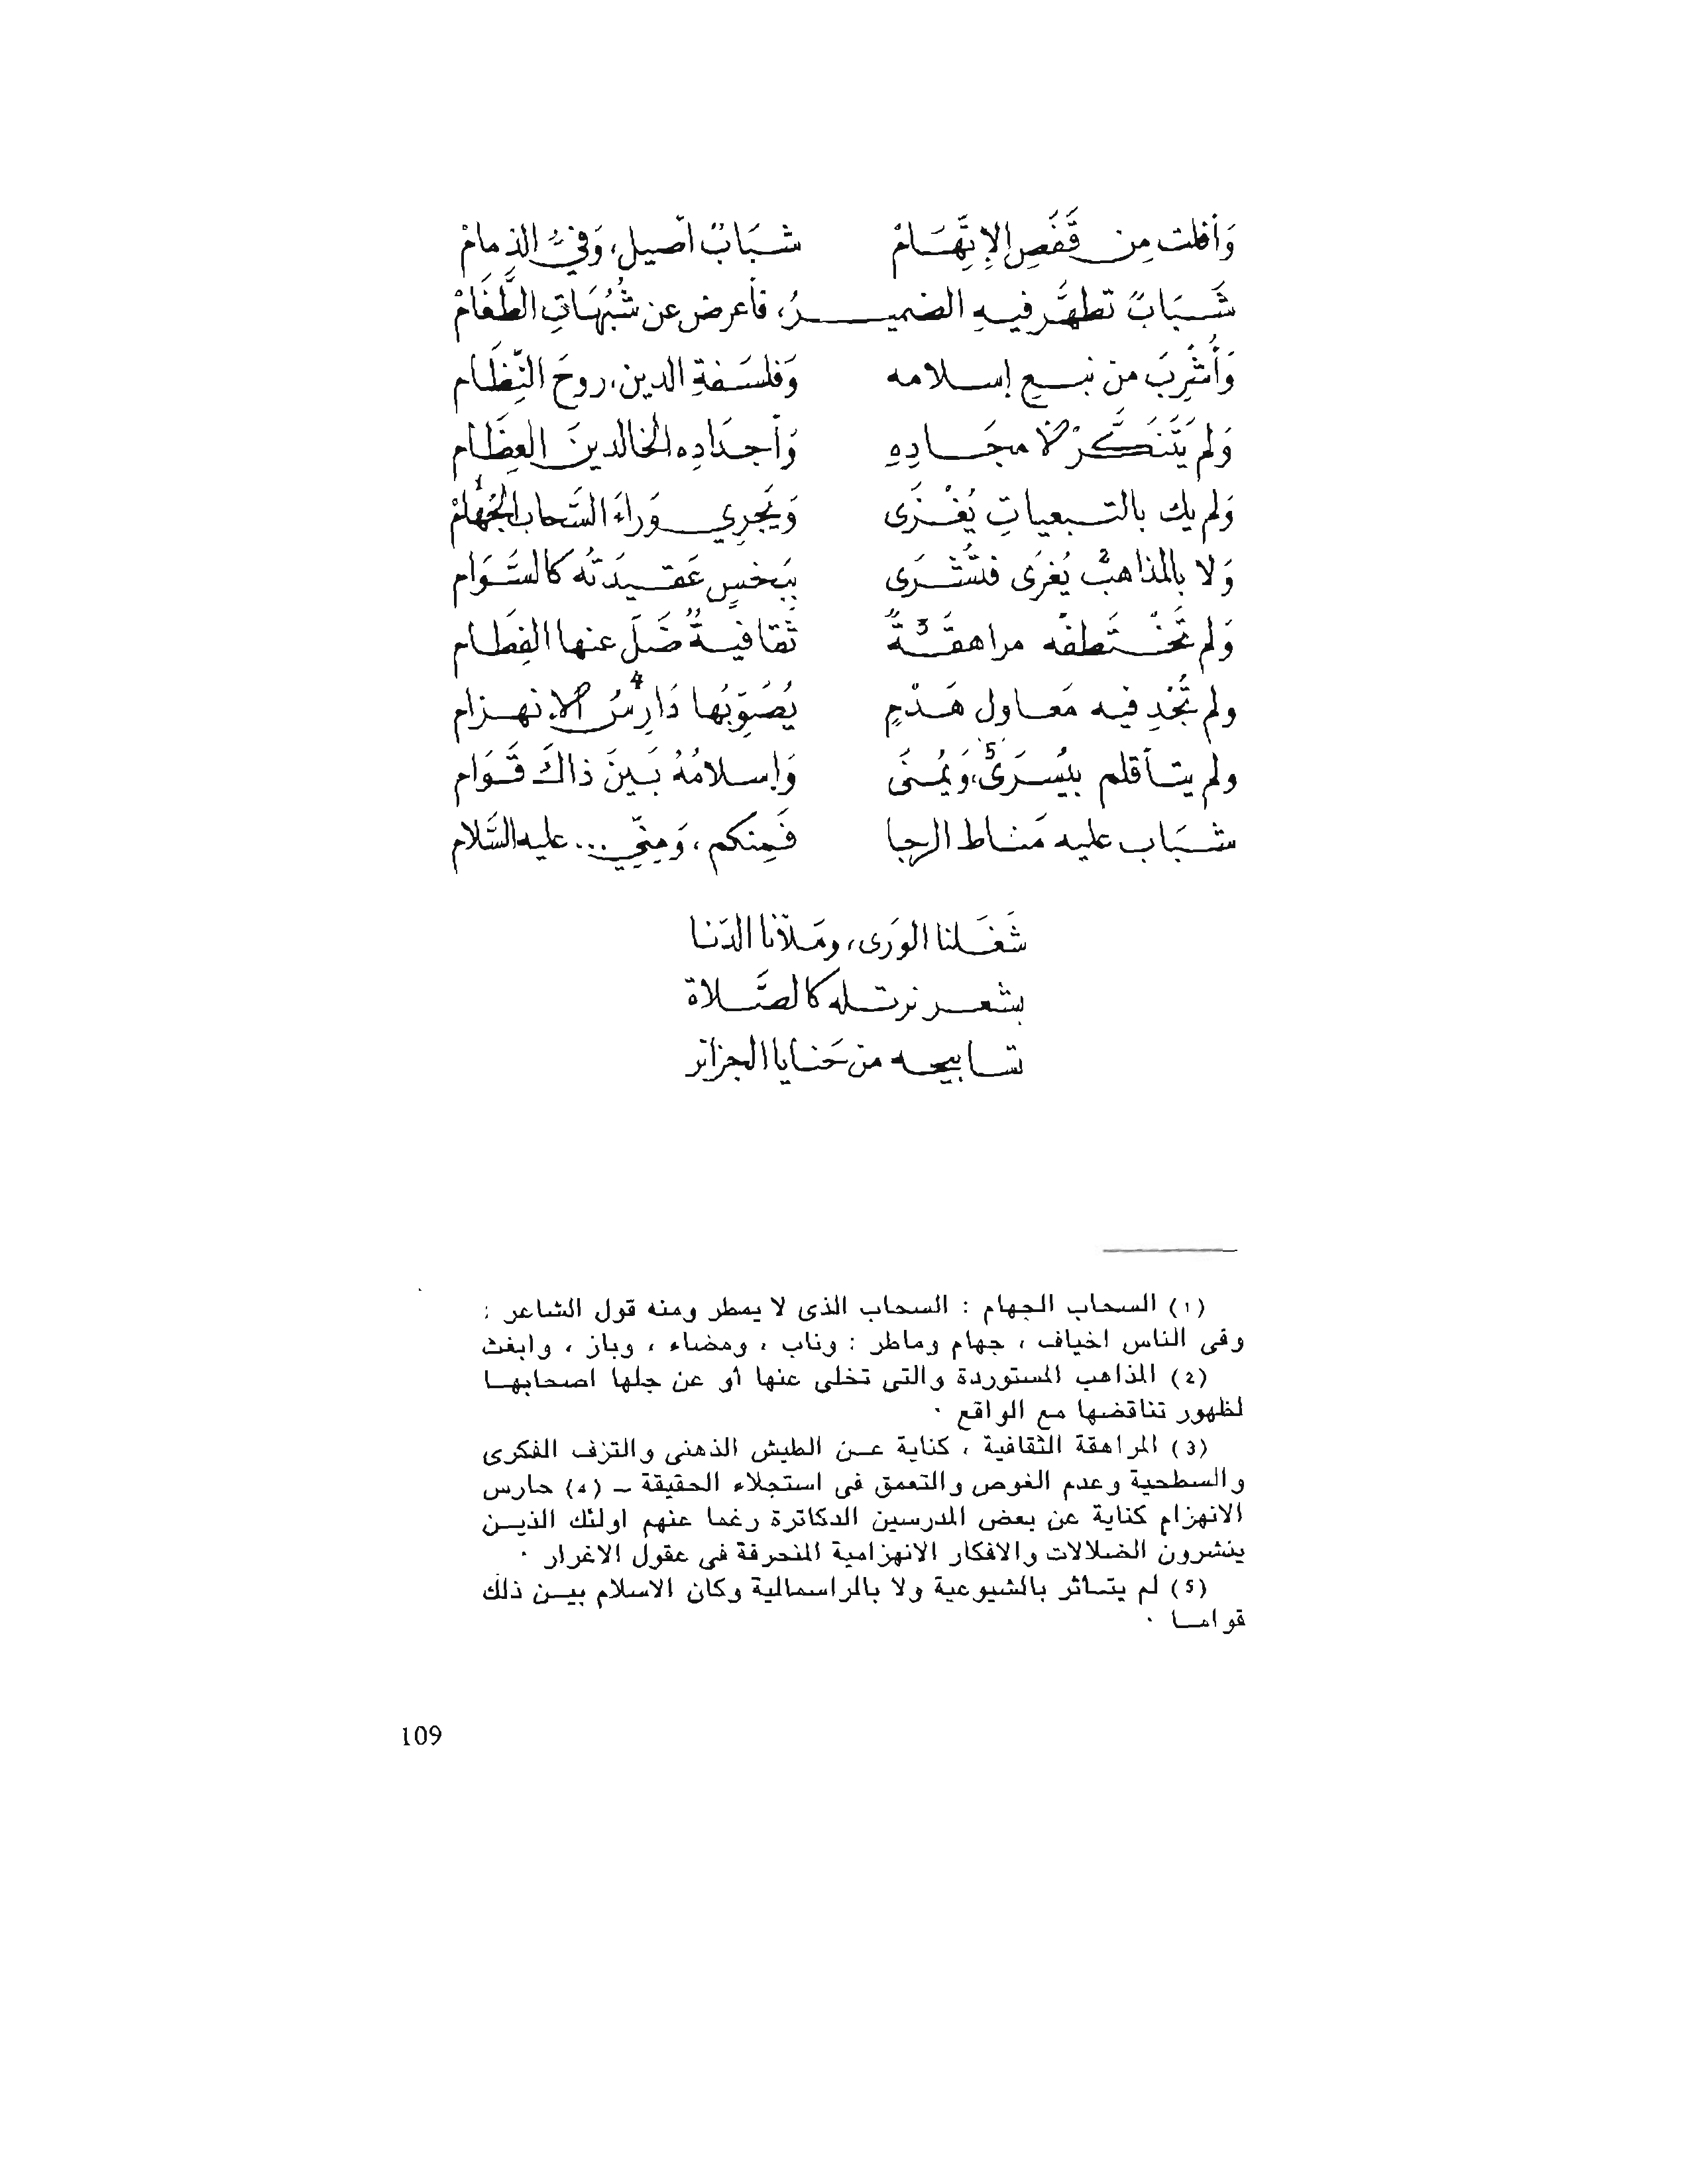 وَأفلت مِن قَفَصِ الإِتِّهَامْ شبَابٌ أصيل، وَفيُّ الذِمامْ
شَبَابٌ تطهَّر فيهِ الضميرُ، فأعرض عن شُبُهَاتِ الطَّغَامْ
وَأُشْرِبَ من نبعِ إسلامه وَفلسَفةِ الدين، روحَ النِّظَام
وَلم يَتَنَكَّرْ لأمجَادِهِ وَأجدَادِه الخالدينَ العِظَام
وَلم يك بالتبعياتِ يُغْزَى وَيَجرِي وَراءَ السَّحاب الجَهَامْ¹
وَلا بالمذاهبِ² يُغرَى فتُشْرَى ببَخسٍ عَقيدَتُه كالسَّوَام
وَلم تَخْتَطفْه مراهقَةٌ³ ثَقافيةٌ ضَلَّ عنها الفِطَام
ولم تُجْدِ فيه مَعاول هَدْمٍ يُصَوِّبُها دَارِسُ⁴ الانهزام
ولم يتأقلم بيُسرَى⁵، وَيُمنَى وَإسلامُهُ بَينَ ذاكَ قَوَام
شبَاب عليه مَناط الرجا فَمِنكم، وَمِنِّي... عليه السَّلام
شَغَلنا الورَى، ومَلأنا الدّنا
بشعر نرتله كالصَّلاة
تسابيحه من حَنايا الجزائر
(1) السحاب الجهام : السحاب الذى لا يمطر ومنه قول الشاعر :
وفى الناس اخياف ، جهام وماطر : وناب ، ومضاء ، وباز ، وابغث
(2) المذاهب المستوردة والتى تخلى عنها أو عن جلها اصحابها
لظهور تناقضها مع الواقع ·
(3) المراهقة الثقافية ، كناية عن الطيش الذهنى والتزف الفكرى
والسطحية وعدم الغوص والتعمق فى استجلاء الحقيقة – (4) حارس
الانهزام كناية عن بعض المدرسين الدكاترة رغما عنهم اولئك الذين
ينشرون الضلالات والافكار الانهزامية المنحرفة فى عقول الاغرار ·
(5) لم يتأثر بالشيوعية ولا بالراسمالية وكان الاسلام بين ذلك
قواما ·
109